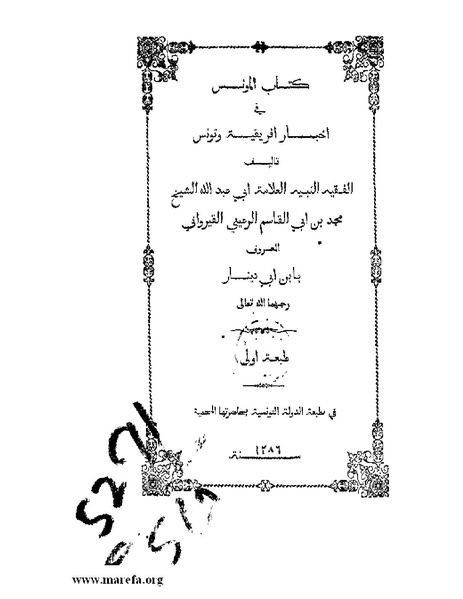 كتاب المونس
في
اخبار افريقية وتونس
تاليف
الفقيه النبيه العلامة ابي عبد الله الشيخ
محمد بن ابي القاسم الرعيني القيرواني
المعروف
بابن ابي دينار
رحمهما الله تعالى
طبعة اولى
في طبعة الدولة التونسية بحاضرتها المحمية
سنة ١٢٨٦
5271
www.marefa.org